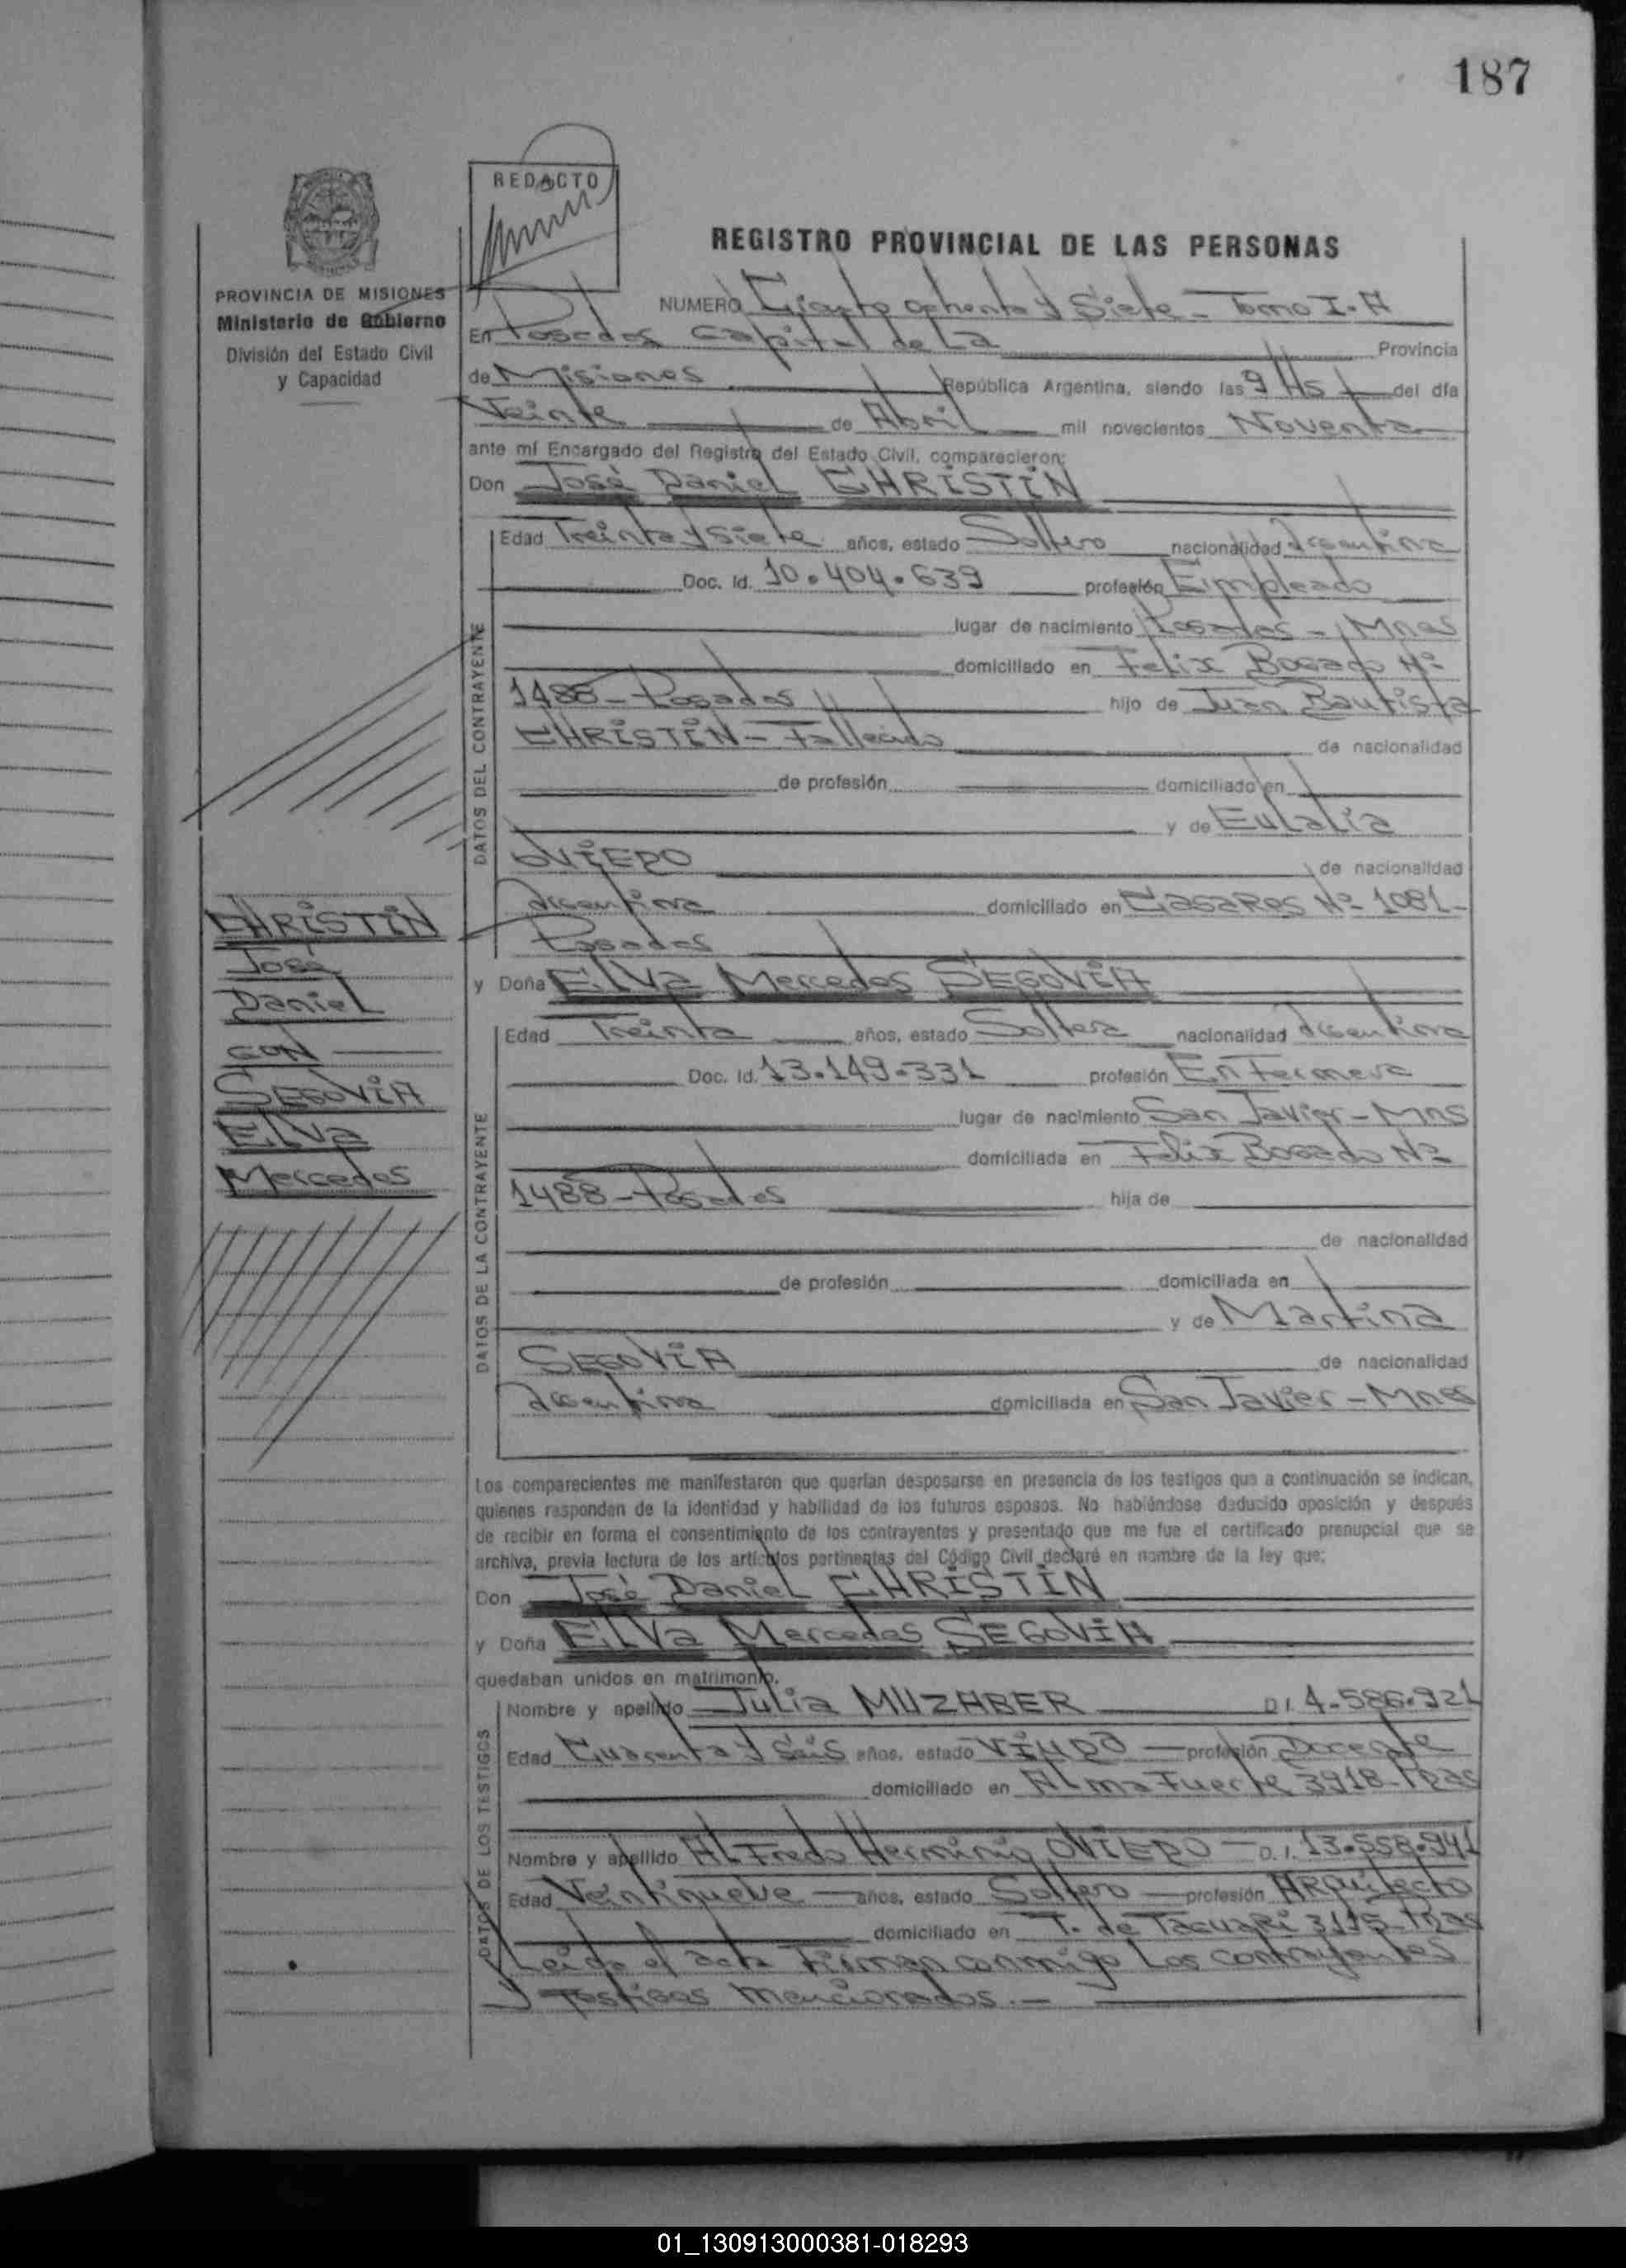 187
REDACTO
REGISTRO PROVINCIAL DE LAS PERSONAS
PROVINCIA DE MISIONES
Ministerio de Gobierno
División del Estado Civil
y Capacidad
NUMERO Ciento ochenta y Siete - Tomo I-A
En Posadas Capital de La Provincia
de Misiones República Argentina, siendo las 9 Hs del día
Veinte de Abril mil novecientos Noventa
ante mí Encargado del Registro del Estado Civil, comparecieron:
Don José Daniel CHRISTIN
DATOS DEL CONTRAYENTE
Edad Treinta y Siete años, estado Soltero nacionalidad Argentina
Doc. Id. 10.404.639 profesión Empleado
lugar de nacimiento Posadas - Mnes
domiciliado en Felix Bogado Nº
1488 - Posadas hijo de Juan Bautista
CHRISTIN - Fallecido de nacionalidad
de profesión domiciliado en
y de Eulalia
OVIEDO de nacionalidad
Argentina domiciliado en Casares Nº 1081-
Posadas
CHRISTIN
José
Daniel
CON
SEGOVIA
Elva
Mercedes
y Doña Elva Mercedes SEGOVIA
DATOS DE LA CONTRAYENTE
Edad Treinta años, estado Soltera nacionalidad Argentina
Doc. Id. 13.149.331 profesión Enfermera
lugar de nacimiento San Javier - Mns
domiciliada en Felix Bogado Nº
1488 - Posadas hija de
de nacionalidad
de profesión domiciliada en
y de Martina
SEGOVIA de nacionalidad
Argentina domiciliada en San Javier - Mnes
Los comparecientes me manifestaron que querían desposarse en presencia de los testigos que a continuación se indican,
quienes responden de la identidad y habilidad de los futuros esposos. No habiéndose deducido oposición y después
de recibir en forma el consentimiento de los contrayentes y presentado que me fue el certificado prenupcial que se
archiva, previa lectura de los artículos pertinentes del Código Civil declaré en nombre de la ley que:
Don José Daniel CHRISTIN
y Doña Elva Mercedes SEGOVIA
quedaban unidos en matrimonio.
DATOS DE LOS TESTIGOS
Nombre y apellido Julia MUZABER D.I. 4.586.921
Edad Cuarenta y Seis años, estado VIUDO profesión Docente
domiciliado en Alma Fuerte 3918 - Pdas
Nombre y apellido Alfredo Herminio OVIEDO - D.I. 13.558.941
Edad Veintinueve años, estado Soltero profesión Arquitecto
domiciliado en T. de Tacuari 3115 Pdas
Leída el acta Firman conmigo Los contrayentes
y testigos mencionados.-
01_130913000381-018293